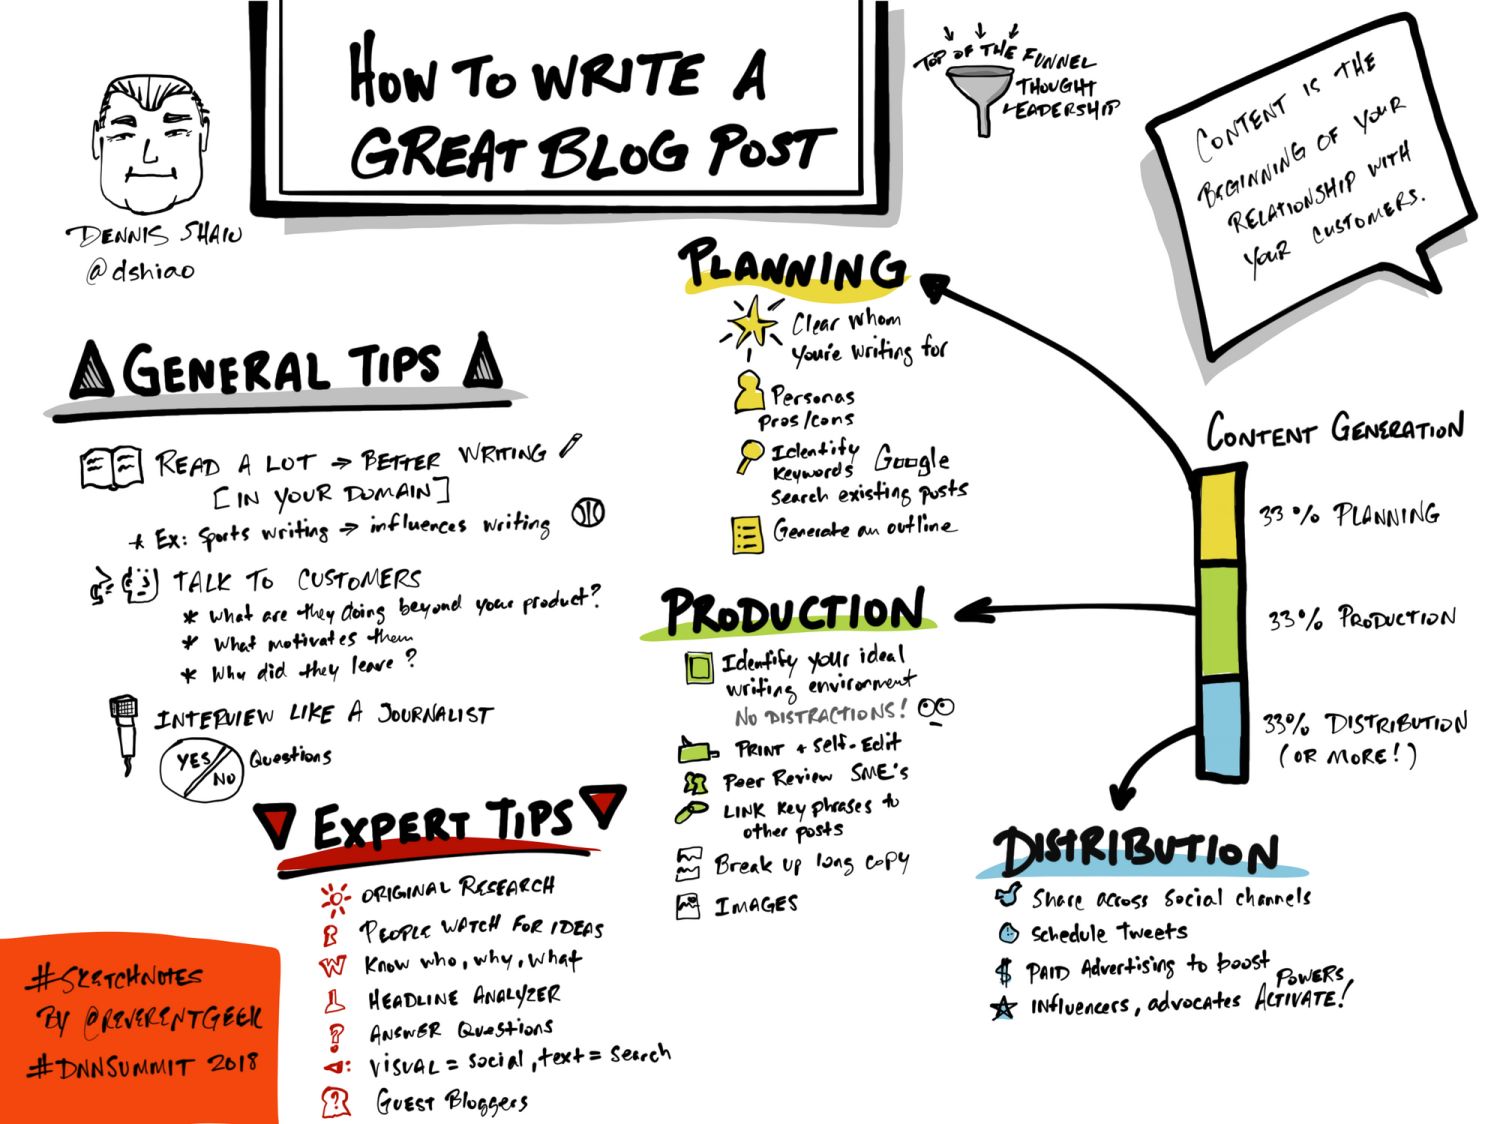 HOW TO WRITE A
GREAT BLOG POST
TOP OF THE FUNNEL
THOUGHT
LEADERSHIP
CONTENT IS THE
BEGINNING OF YOUR
RELATIONSHIP WITH
YOUR CUSTOMERS.
DENNIS SHAIO
@dshiao
GENERAL TIPS
READ A LOT → BETTER WRITING
[IN YOUR DOMAIN]
* Ex: Sports writing → influences writing
TALK TO CUSTOMERS
* What are they doing beyond your product?
* What motivates them
* Why did they leave?
INTERVIEW LIKE A JOURNALIST
YES/NO Questions
EXPERT TIPS
ORIGINAL RESEARCH
PEOPLE WATCH FOR IDEAS
Know who, why, what
HEADLINE ANALYZER
ANSWER QUESTIONS
VISUAL = Social, text = Search
GUEST Bloggers
PLANNING
Clear whom
you're writing for
Personas
pros/cons
Identify
Keywords Google
Search existing posts
Generate an outline
PRODUCTION
Identify your ideal
writing environment
NO DISTRACTIONS!
PRINT + Self-Edit
Peer Review SME's
LINK Key phrases to
other posts
Break up long copy
IMAGES
CONTENT GENERATION
33% PLANNING
33% PRODUCTION
33% DISTRIBUTION
(OR MORE!)
DISTRIBUTION
Share across Social channels
Schedule Tweets
PAID Advertising to boost
Influencers, advocates POWERS ACTIVATE!
#SKETCHNOTES
BY @REVERENTGEEK
#DNNSUMMIT 2018